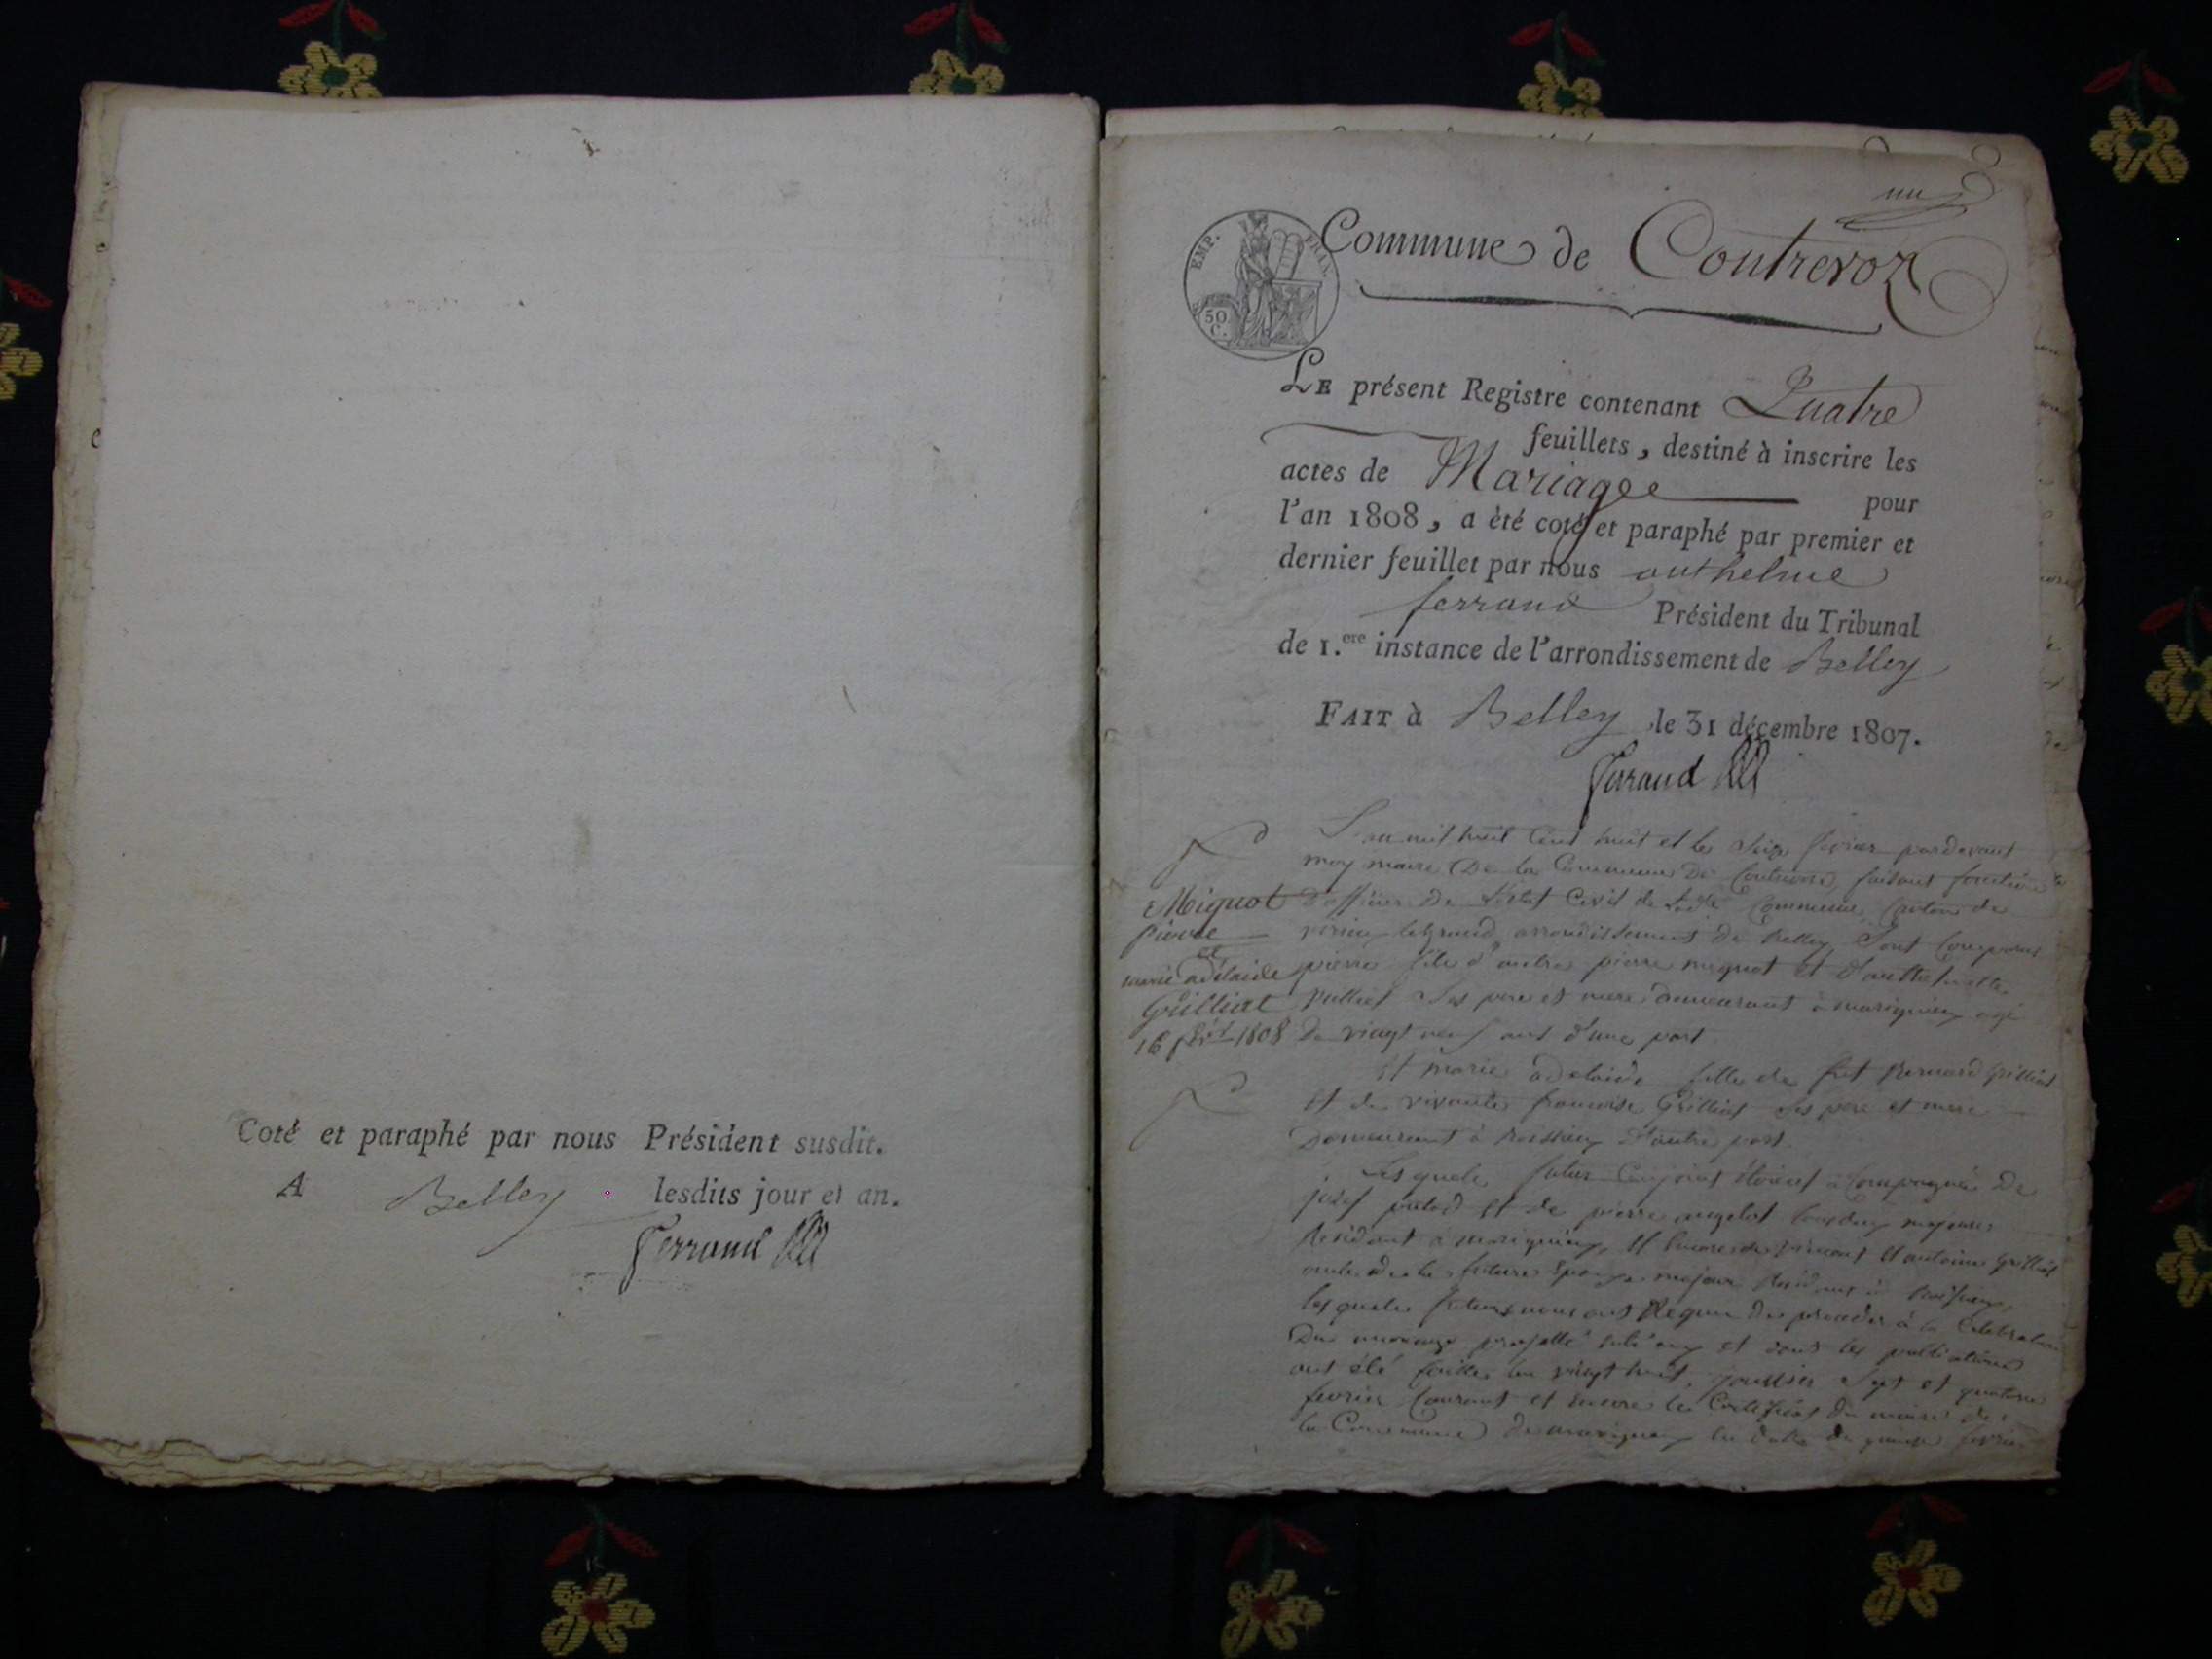 Coté et paraphé par nous Président susdit.
A Belley lesdits jour et an.
Ferrand
un
EMP. FRAN.
50 C.
Commune de Contrevoz
LE présent Registre contenant Quatre
feuillets, destiné à inscrire les
actes de Mariage pour
l'an 1808, a été coté et paraphé par premier et
dernier feuillet par nous anthelme
ferrand Président du Tribunal
de 1.ere instance de l'arrondissement de Belley
FAIT à Belley le 31 décembre 1807.
Ferrand
Miguot
pierre
et
marie adélaide
Grilliat
16 févr 1808
L'an mil huit cent huit et le seize fevrier pardevant
moy maire De la Commune De Contrevoz, faisant fonction
D'officier De L'état Civil de Commune, Canton de
virieu le grand arrondissement de Belley, Sont comparus
pierre fils d'autre pierre miguot et
Sos pere et mere demeurant à marignieu agé
De vingt neuf ans d'une part.
Et marie adelaide fille de Bernard Grilliat
Et de vivante francoise Grilliat Ses pere et mere
Demeurant à d'autre part.
Lesquels futur Conjoints étoient accompagné De
josef et de pierre majeurs
Résidant à marignieu, Et Et antoine Grilliat
oncle de la future Epouse majeur Résidant à
lesquels futurs nous ont Requis De proceder à la Celebration
Du mariage projetté entr'eux et dont les publications
ont été faittes les vingt huit janvier Sept et quatorze
fevrier Courant et encore le Certificat du maire de
la Commune De marignieu en date du quinze fevrier